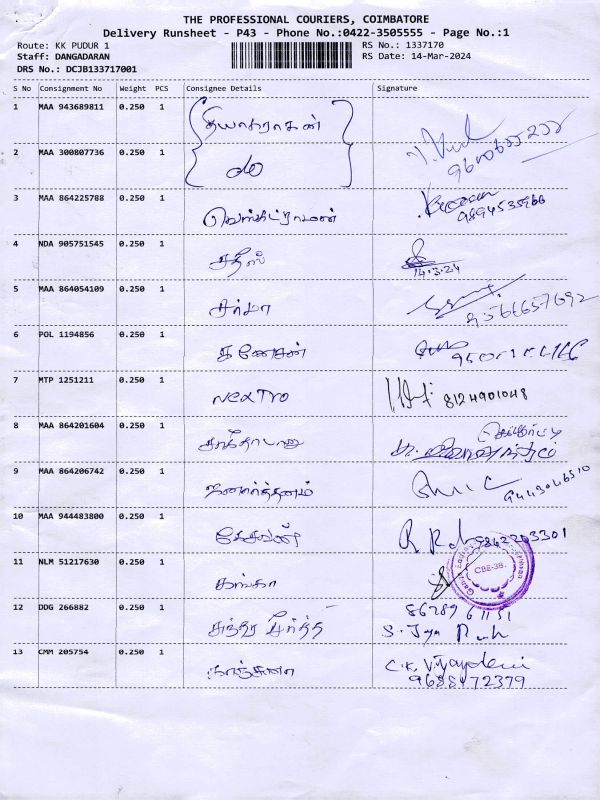 THE PROFESSIONAL COURIERS, COIMBATORE
Delivery Runsheet - P43 - Phone No.:0422-3505555 - Page No.:1
Route: KK PUDUR 1
RS No.: 1337170
Staff: DANGADARAN
RS Date: 14-Mar-2024
DRS No.: DCJB133717001
S No Consignment No Weight PCS Consignee Details Signature
1 MAA 943689811 0.250 1 தியாகராகன்
2 MAA 300807736 0.250 1 do
3 MAA 864225788 0.250 1 வெங்கட்ராமணன்
9894535966
4 NDA 905751545 0.250 1 சதீஸ்
14.3.24
5 MAA 864054109 0.250 1 சர்மா
9566657692
6 POL 1194856 0.250 1 கணேசன்
7 MTP 1251211 0.250 1 Nextro 8124901048
8 MAA 864201604 0.250 1 சாந்தாபானு
9 MAA 864206742 0.250 1 ஜனார்த்தனம்
9443046510
10 MAA 944483800 0.250 1 கேசவன் 9842203301
11 NLM 51217630 0.250 1 கங்கா
CBE-38.
12 DDG 266882 0.250 1
86789 61151
13 CMM 205754 0.250 1 காஞ்சனா
C.K. Vijaydevi
9688872379